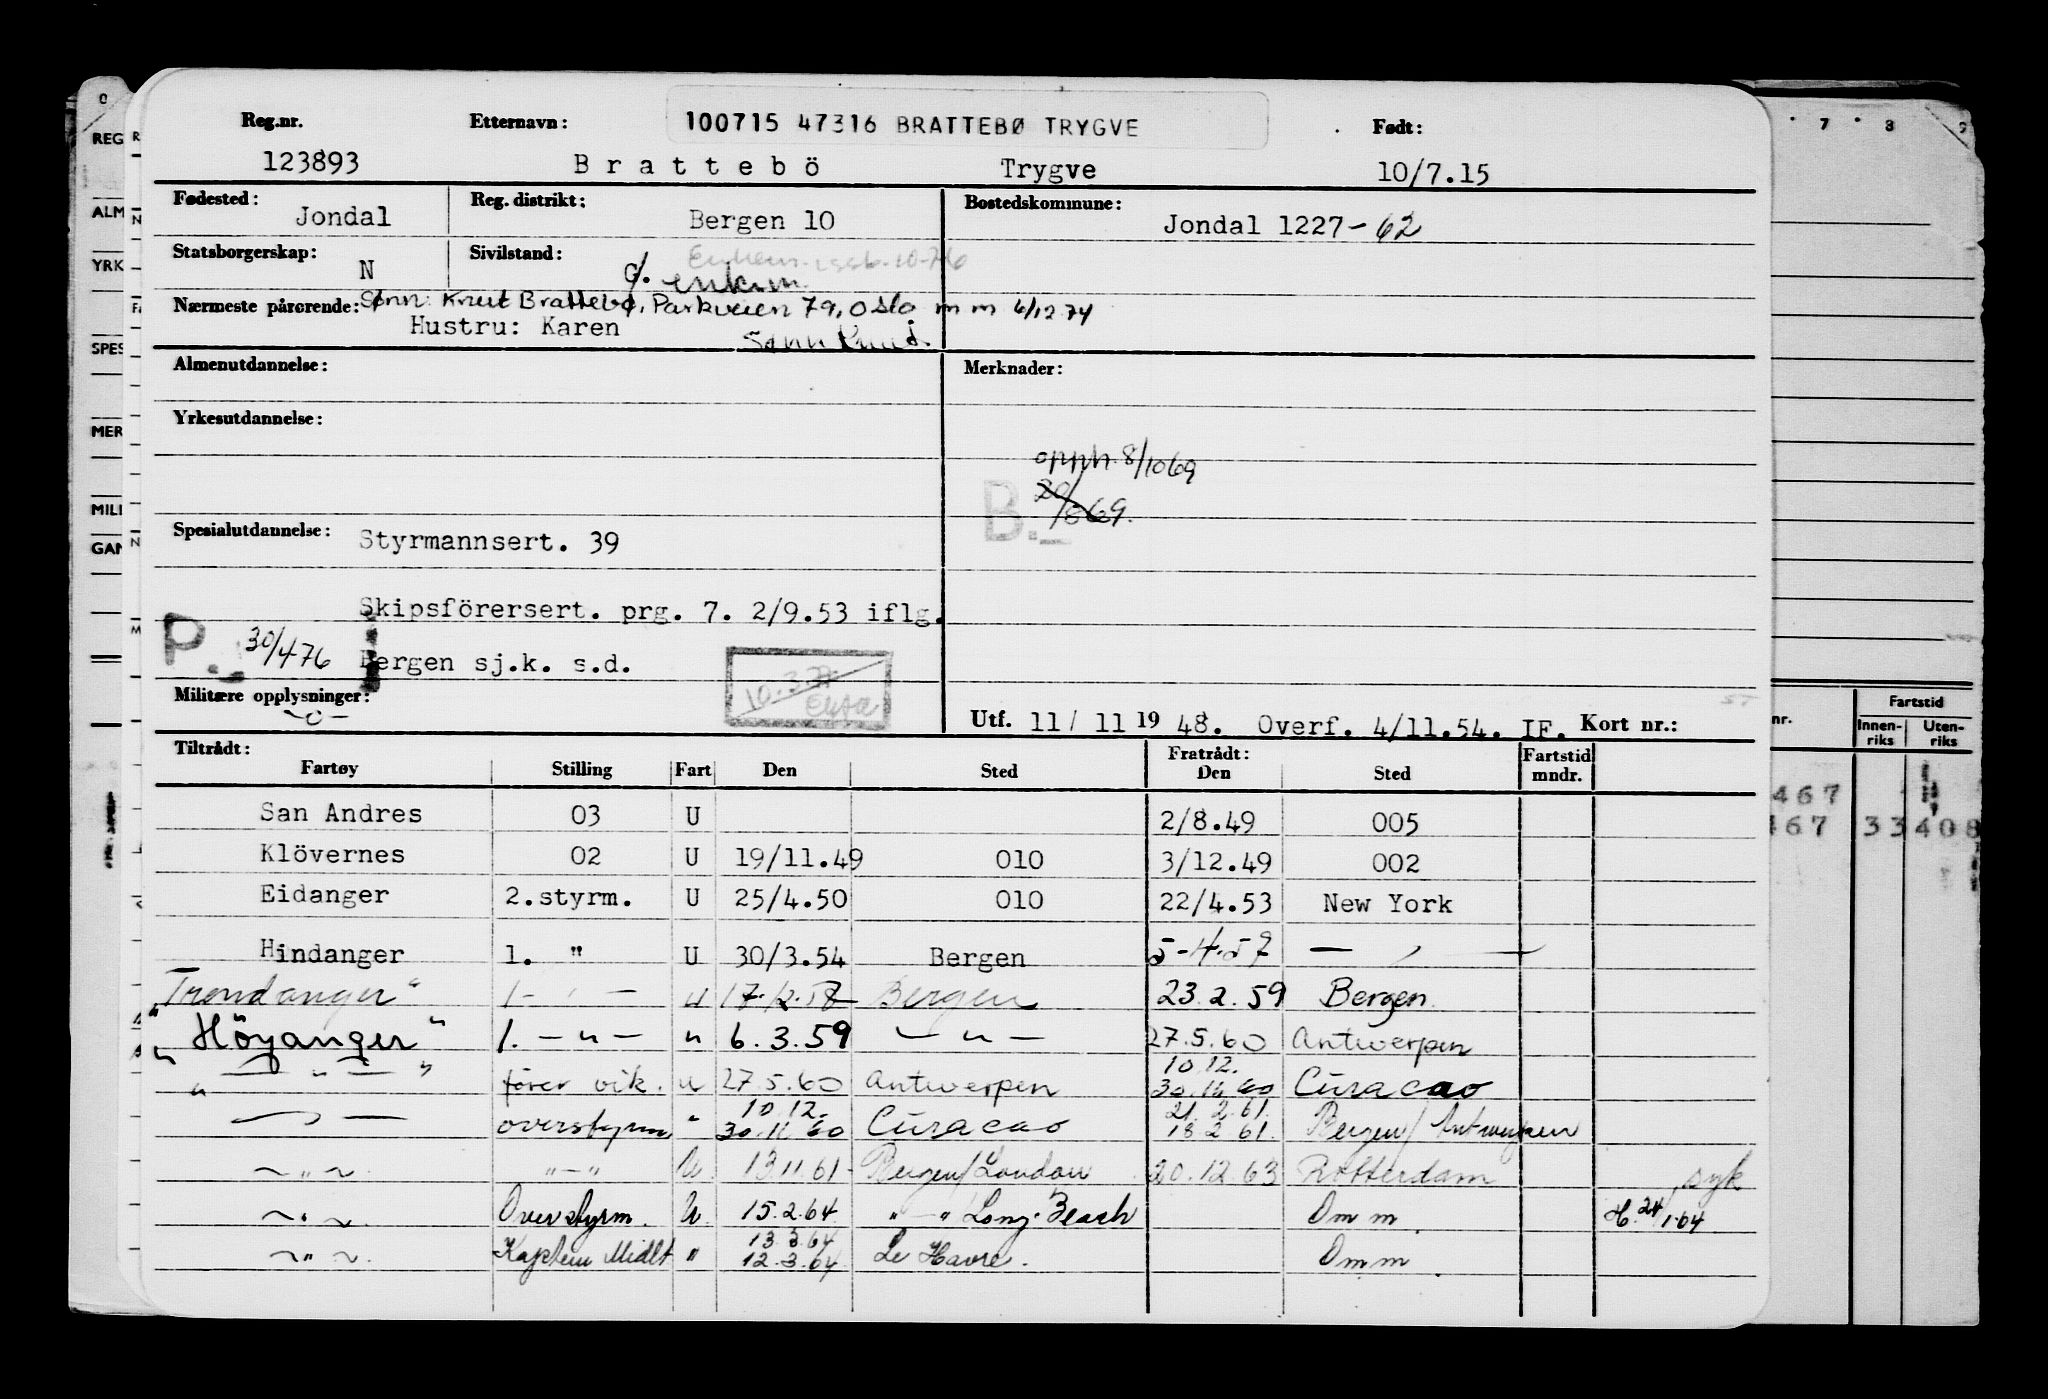 Reg.nr. Etternavn: 100715 47316 BRATTEBØ TRYGVE Født:
123893 Brattebö Trygve 10/7.15
Fødested: Jondal Reg. distrikt: Bergen 10 Bostedskommune: Jondal 1227-62
Statsborgerskap: N Sivilstand: g. enkem.
Nærmeste pårørende: Sønn: Knut Brattebø, Parkveien 79, Oslo m m 6/12 74
Hustru: Karen Sønn Knud.
Almenutdannelse: Merknader:
Yrkesutdannelse:
opph. 8/10 69
B. 20/8 69.
Spesialutdannelse: Styrmannsert. 39
Skipsförersert. prg. 7. 2/9.53 iflg.
P. 30/4 76 Bergen sj.k. s.d.
10.3.77
Militære opplysninger: -o-
Utf. 11/ 11 19 48. Overf. 4/11.54. IF. Kort nr.:
Tiltrådt: Fratrådt: Fartstid
Fartøy Stilling Fart Den Sted Den Sted mndr.
San Andres 03 U 2/8.49 005
Klövernes 02 U 19/11.49 010 3/12.49 002
Eidanger 2.styrm. U 25/4.50 010 22/4.53 New York
Hindanger 1. " U 30/3.54 Bergen 5-4.57 — , —
"Trondanger" 1- - — u 17.12.58 Bergen 23.2.59 Bergen.
"Höyanger" 1. — " — " 6.3.59 — " — 27.5.60 Antwerpen
" — " — " fører vik. u 27.5.60 Antwerpen 10.12. 30.11.60 Curacao
— , — overstyrm " 10.12. 30.11.60 Curacao 21.2.61. 18.2.61. Bergen/Antwerpen
~ " ~ " — " U. 13.11.61 - Bergen/London 20.12.63 Rotterdam syk
~ " ~ Overstyrm. U. 15.2.64 " — " Long-Beach Omm. H. 24/1-64
~ " ~ Kaptein Midlt " 13.3.64 12.3.64 Le Havre. Omm.
REG
ALM
YRK
SPES
MER
MILI
GAN
7 8 9
nr. Fartstid
Innen-riks Uten-riks
467
467 33 408